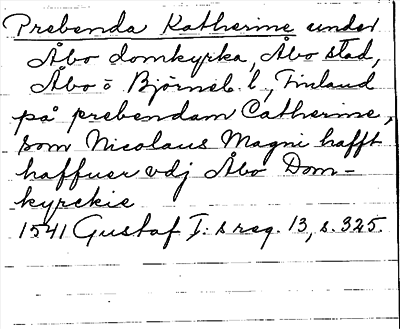 Prebenda Katherine under
Åbo domkyrka, Åbo stad,
Åbo o Björneb. l., Finland
på prebendam Catherine,
som Nicolaus Magni hafft
haffuer vdj Åbo Dom-
kyrckie
1541 Gustaf I:s reg. 13, s. 325.